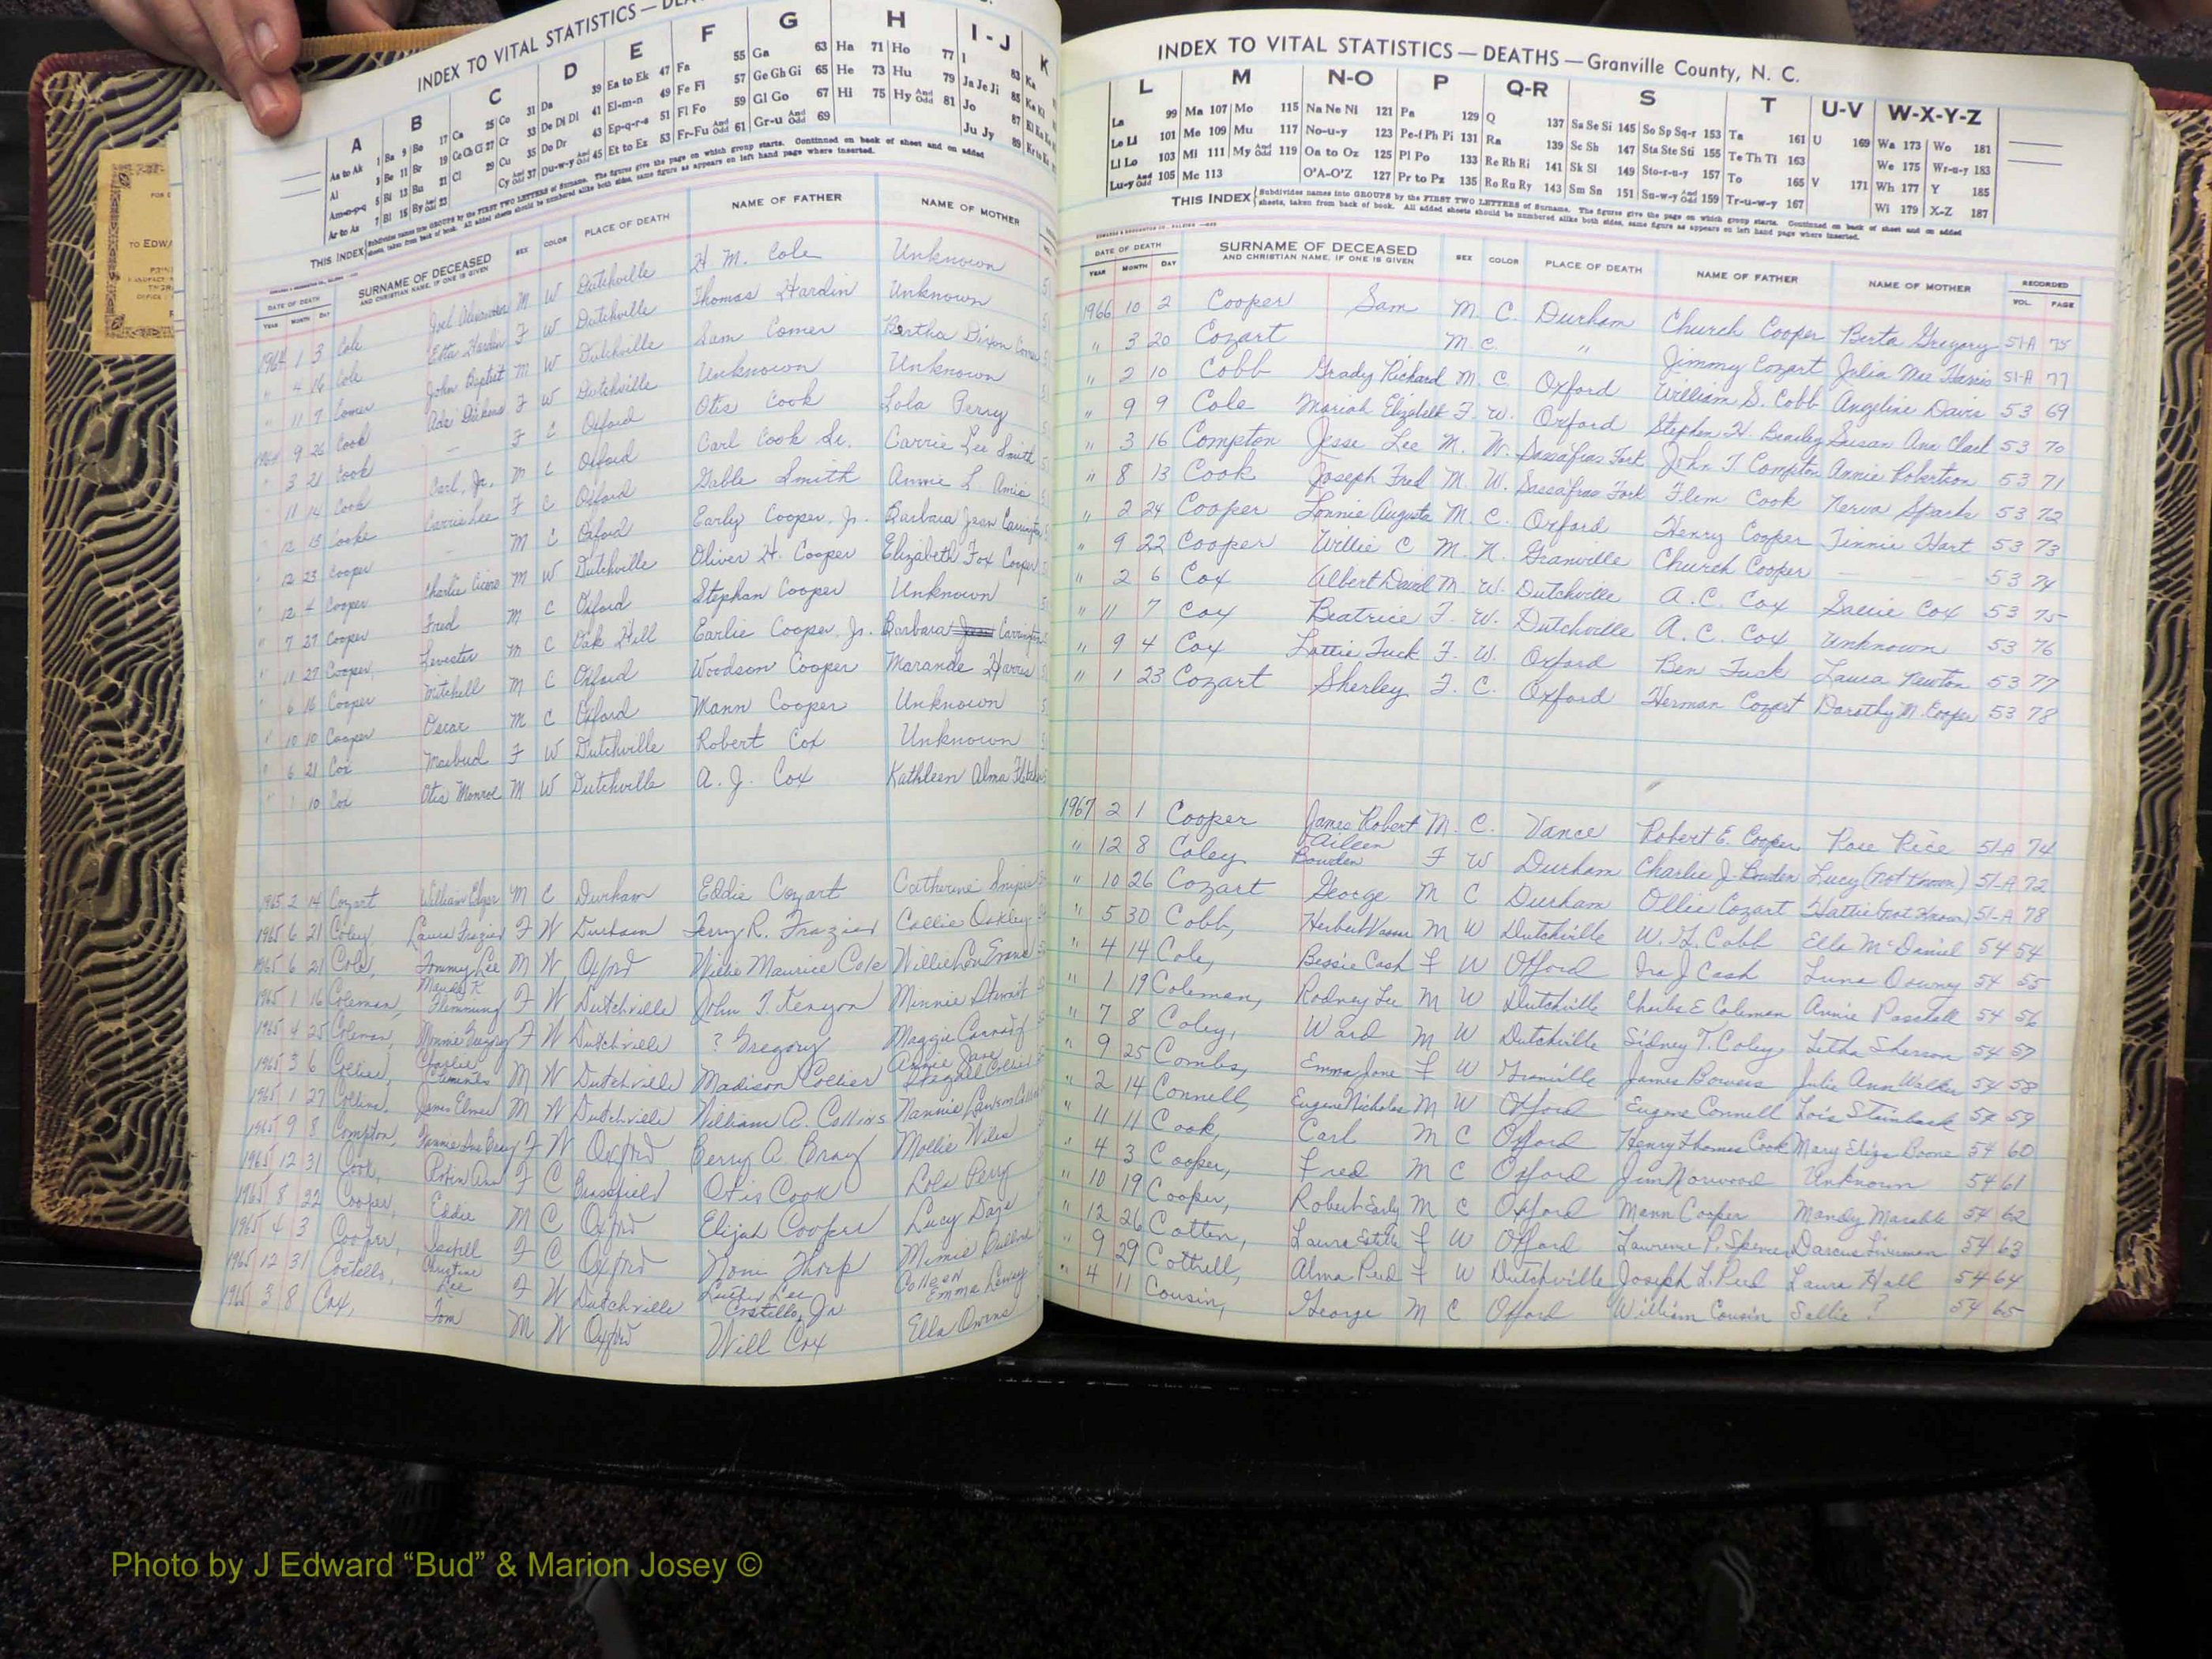 INDEX TO VITAL STATISTICS — DEA
A B C D E F G H I-J K
As to Ak 1 Ba 9 Bo 17 Ca 25 Co 31 Da 39 Ea to Ek 47 Fa 55 Ga 63 Ha 71 Ho 77 I 83 Ka
Al 3 Be 11 Br 19 Ce Ch Ci 27 Cr 33 De Di Dl 41 El-m-n 49 Fe Fi 57 Ge Gh Gi 65 He 73 Hu 79 Ja Je Ji 85
5 Bi 13 Bu 21 Cl 29 Cu 35 Do Dr 43 Ep-q-r-s 51 Fl Fo 59 Gl Go 67 Hi 75 Hy And Odd 81 Jo 87
Ar to As 7 Bl 15 By And Odd 23 Cy And Odd 37 Du-w-y And Odd 45 Et to Ez 53 Fr-Fu And Odd 61 Gr-u And Odd 69 Ju Jy 89
THIS INDEX Subdivides names into GROUPS by the FIRST TWO LETTERS of Surname. The figures give the page on which group starts. Continued on back of sheet and on added sheets, taken from back of book. All added sheets should be numbered alike both sides, same figure as appears on left hand page where inserted.
DATE OF DEATH SURNAME OF DECEASED SEX COLOR PLACE OF DEATH NAME OF FATHER NAME OF MOTHER
YEAR MONTH DAY AND CHRISTIAN NAME, IF ONE IS GIVEN
1964 1 3 Cole Joel Alexander M W Dutchville H. M. Cole Unknown
" 4 16 Cole Etta Hardin F W Dutchville Thomas Hardin Unknown
" 11 7 Comer John Baptist M W Dutchville Sam Comer Bertha Dixon Comer
1964 9 26 Cook Ada Dickens F W Dutchville Unknown Unknown
" 3 21 Cook — F C Oxford Otis Cook Lola Perry
" 11 14 Cook Carl, Jr. M C Oxford Carl Cook Sr. Carrie Lee Smith
" 12 15 Cooke Carrie Lee F C Oxford Gable Smith Annie L. Amis
" 12 23 Cooper - M C Oxford Early Cooper, Jr. Barbara Jean Carrington
" 12 4 Cooper Charlie M W Dutchville Oliver H. Cooper Elizabeth Fox Cooper
" 7 27 Cooper Fred M C Oxford Stephan Cooper Unknown
" 11 27 Cooper, Levester M C Oak Hill Earlie Cooper, Jr. Barbara Jean Carrington
" 6 16 Cooper Mitchell M C Oxford Woodson Cooper Marande Harris
" 10 10 Cooper Oscar M C Oxford Mann Cooper Unknown
" 6 21 Cox Maebud F W Dutchville Robert Cox Unknown
" 1 10 Cox Otis Monroe M W Dutchville A. J. Cox Kathleen Alma
1965 2 14 Cozart William Edgar M C Durham Eddie Cozart Catherine Snipes
1965 6 21 Coley Laura Frazier F W Durham Terry R. Frazier Callie Oakley
1965 6 21 Cole, Tommy Lee M W Oxford Willie Maurice Cole Willie Lou Evans
1965 1 16 Coleman, Maude K Flemming F W Dutchville John T. Kenyon Minnie Stewart
1965 4 25 Coleman, Monnie Gregory F W Dutchville ? Gregory Maggie
1965 3 6 Collier, Charlie Clements M W Dutchville Madison Collier Annie Jane
1965 1 27 Collins, James Elmer M W Dutchville William A. Collins Nannie Lawson
1965 9 8 Compton, Fannie Sue Bray F W Oxford Berry A Bray Mollie Wiles
1965 12 31 Cook, Robin Ann F C Brassfield Otis Cook Lola Perry
1965 8 22 Cooper, Eddie M C Oxford Elijah Cooper Lucy Daye
1965 4 3 Cooper, F C Oxford Thorp Mimie
1965 12 31 Costello, Christine Lee F W Dutchville Luther Lee Costello, Jr. Colleen Emma
1965 3 8 Cox, Tom M W Oxford Will Cox Ella Owens
INDEX TO VITAL STATISTICS — DEATHS — Granville County, N. C.
L M N-O P Q-R S T U-V W-X-Y-Z
La 99 Ma 107 Mo 115 Na Ne Ni 121 Pa 129 Q 137 Sa Se Si 145 So Sp Sq-r 153 Ta 161 U 169 Wa 173 Wo 181
Le Ll 101 Me 109 Mu 117 No-u-y 123 Pe-f Ph Pi 131 Ra 139 Sc Sh 147 Sta Ste Sti 155 Te Th Ti 163 We 175 Wr-u-y 183
Li Lo 103 Mi 111 My And Odd 119 Oa to Oz 125 Pl Po 133 Re Rh Ri 141 Sk Sl 149 Sto-r-u-y 157 To 165 V 171 Wh 177 Y 185
Lu-y And Odd 105 Mc 113 O'A-O'Z 127 Pr to Pz 135 Ro Ru Ry 143 Sm Sn 151 Su-w-y And Odd 159 Tr-u-w-y 167 Wi 179 X-Z 187
THIS INDEX Subdivides names into GROUPS by the FIRST TWO LETTERS of Surname. The figures give the page on which group starts. Continued on back of sheet and on added sheets, taken from back of book. All added sheets should be numbered alike both sides, same figure as appears on left hand page where inserted.
DATE OF DEATH SURNAME OF DECEASED SEX COLOR PLACE OF DEATH NAME OF FATHER NAME OF MOTHER RECORDED
YEAR MONTH DAY AND CHRISTIAN NAME, IF ONE IS GIVEN VOL. PAGE
1966 10 2 Cooper Sam M. C. Durham Church Cooper Berta Gregory 51-A 75
" 3 20 Cozart M. C. " Jimmy Cozart Julia Mae Harris 51-A 77
" 2 10 Cobb Grady Richard M. C. Oxford William S. Cobb Angeline Davis 53 69
" 9 9 Cole Mariah Elizabeth F. W. Oxford Stephen H. Beasley Susan Ann Clark 53 70
" 3 16 Compton Jesse Lee M. W. Sassafras Fork John T Compton Annie Robertson 53 71
" 8 13 Cook Joseph Fred M. W. Sassafras Fork Flem Cook Nerva Sparks 53 72
" 2 24 Cooper Lonnie Augusta M. C. Oxford Henry Cooper Tinnie Hart 53 73
" 9 22 Cooper Willie C M. N. Granville Church Cooper — — — 53 74
" 2 6 Cox Albert David M. W. Dutchville A. C. Cox Sallie Cox 53 75
" 11 7 Cox Beatrice F. W. Dutchville A. C. Cox Unknown 53 76
" 9 4 Cox Lottie Tuck F. W. Oxford Ben Tuck Laura Newton 53 77
" 1 23 Cozart Sherley F. C. Oxford Herman Cozart Dorothy M. Cooper 53 78
1967 2 1 Cooper James Robert M. C. Vance Robert E. Cooper Rose Rice 51-A 74
" 12 8 Coley Aileen Bowden F W Durham Charlie J. Bowden Lucy (not known) 51-A 72
" 10 26 Cozart George M C Durham Ollie Cozart Hattie (not known) 51-A 78
" 5 30 Cobb, Herbert M W Dutchville W. L. Cobb Ella McDaniel 54 54
" 4 14 Cole, Bessie Cash F W Oxford Ira J Cash Luna Downy 54 55
" 1 19 Coleman, Rodney Lee M W Dutchville Charles E Coleman Annie Paschall 54 56
" 7 8 Coley, Ward M W Dutchville Sidney T. Coley Letha Sherron 54 57
" 9 25 Combs, Emma Jane F W Granville James Bowers Julie Ann Walker 54 58
" 2 14 Connell, Eugene Nicholas M W Oxford Eugene Connell Lois Stainback 54 59
" 11 11 Cook, Carl M C Oxford Henry Thomas Cook Mary Eliza Boone 54 60
" 4 3 Cooper, Fred M C Oxford Jim Norwood Unknown 54 61
" 10 19 Cooper, Robert Early M C Oxford Mann Cooper Mandy Marable 54 62
" 12 26 Cotten, Laura Estelle F W Oxford Lawrence P. Spencer Darcus 54 63
" 9 29 Cottrell, Alma Peed F W Dutchville Joseph L. Peed Laura Hall 54 64
" 4 11 Cousin, George M C Oxford William Cousin Sallie ? 54 65
Photo by J Edward “Bud” & Marion Josey ©